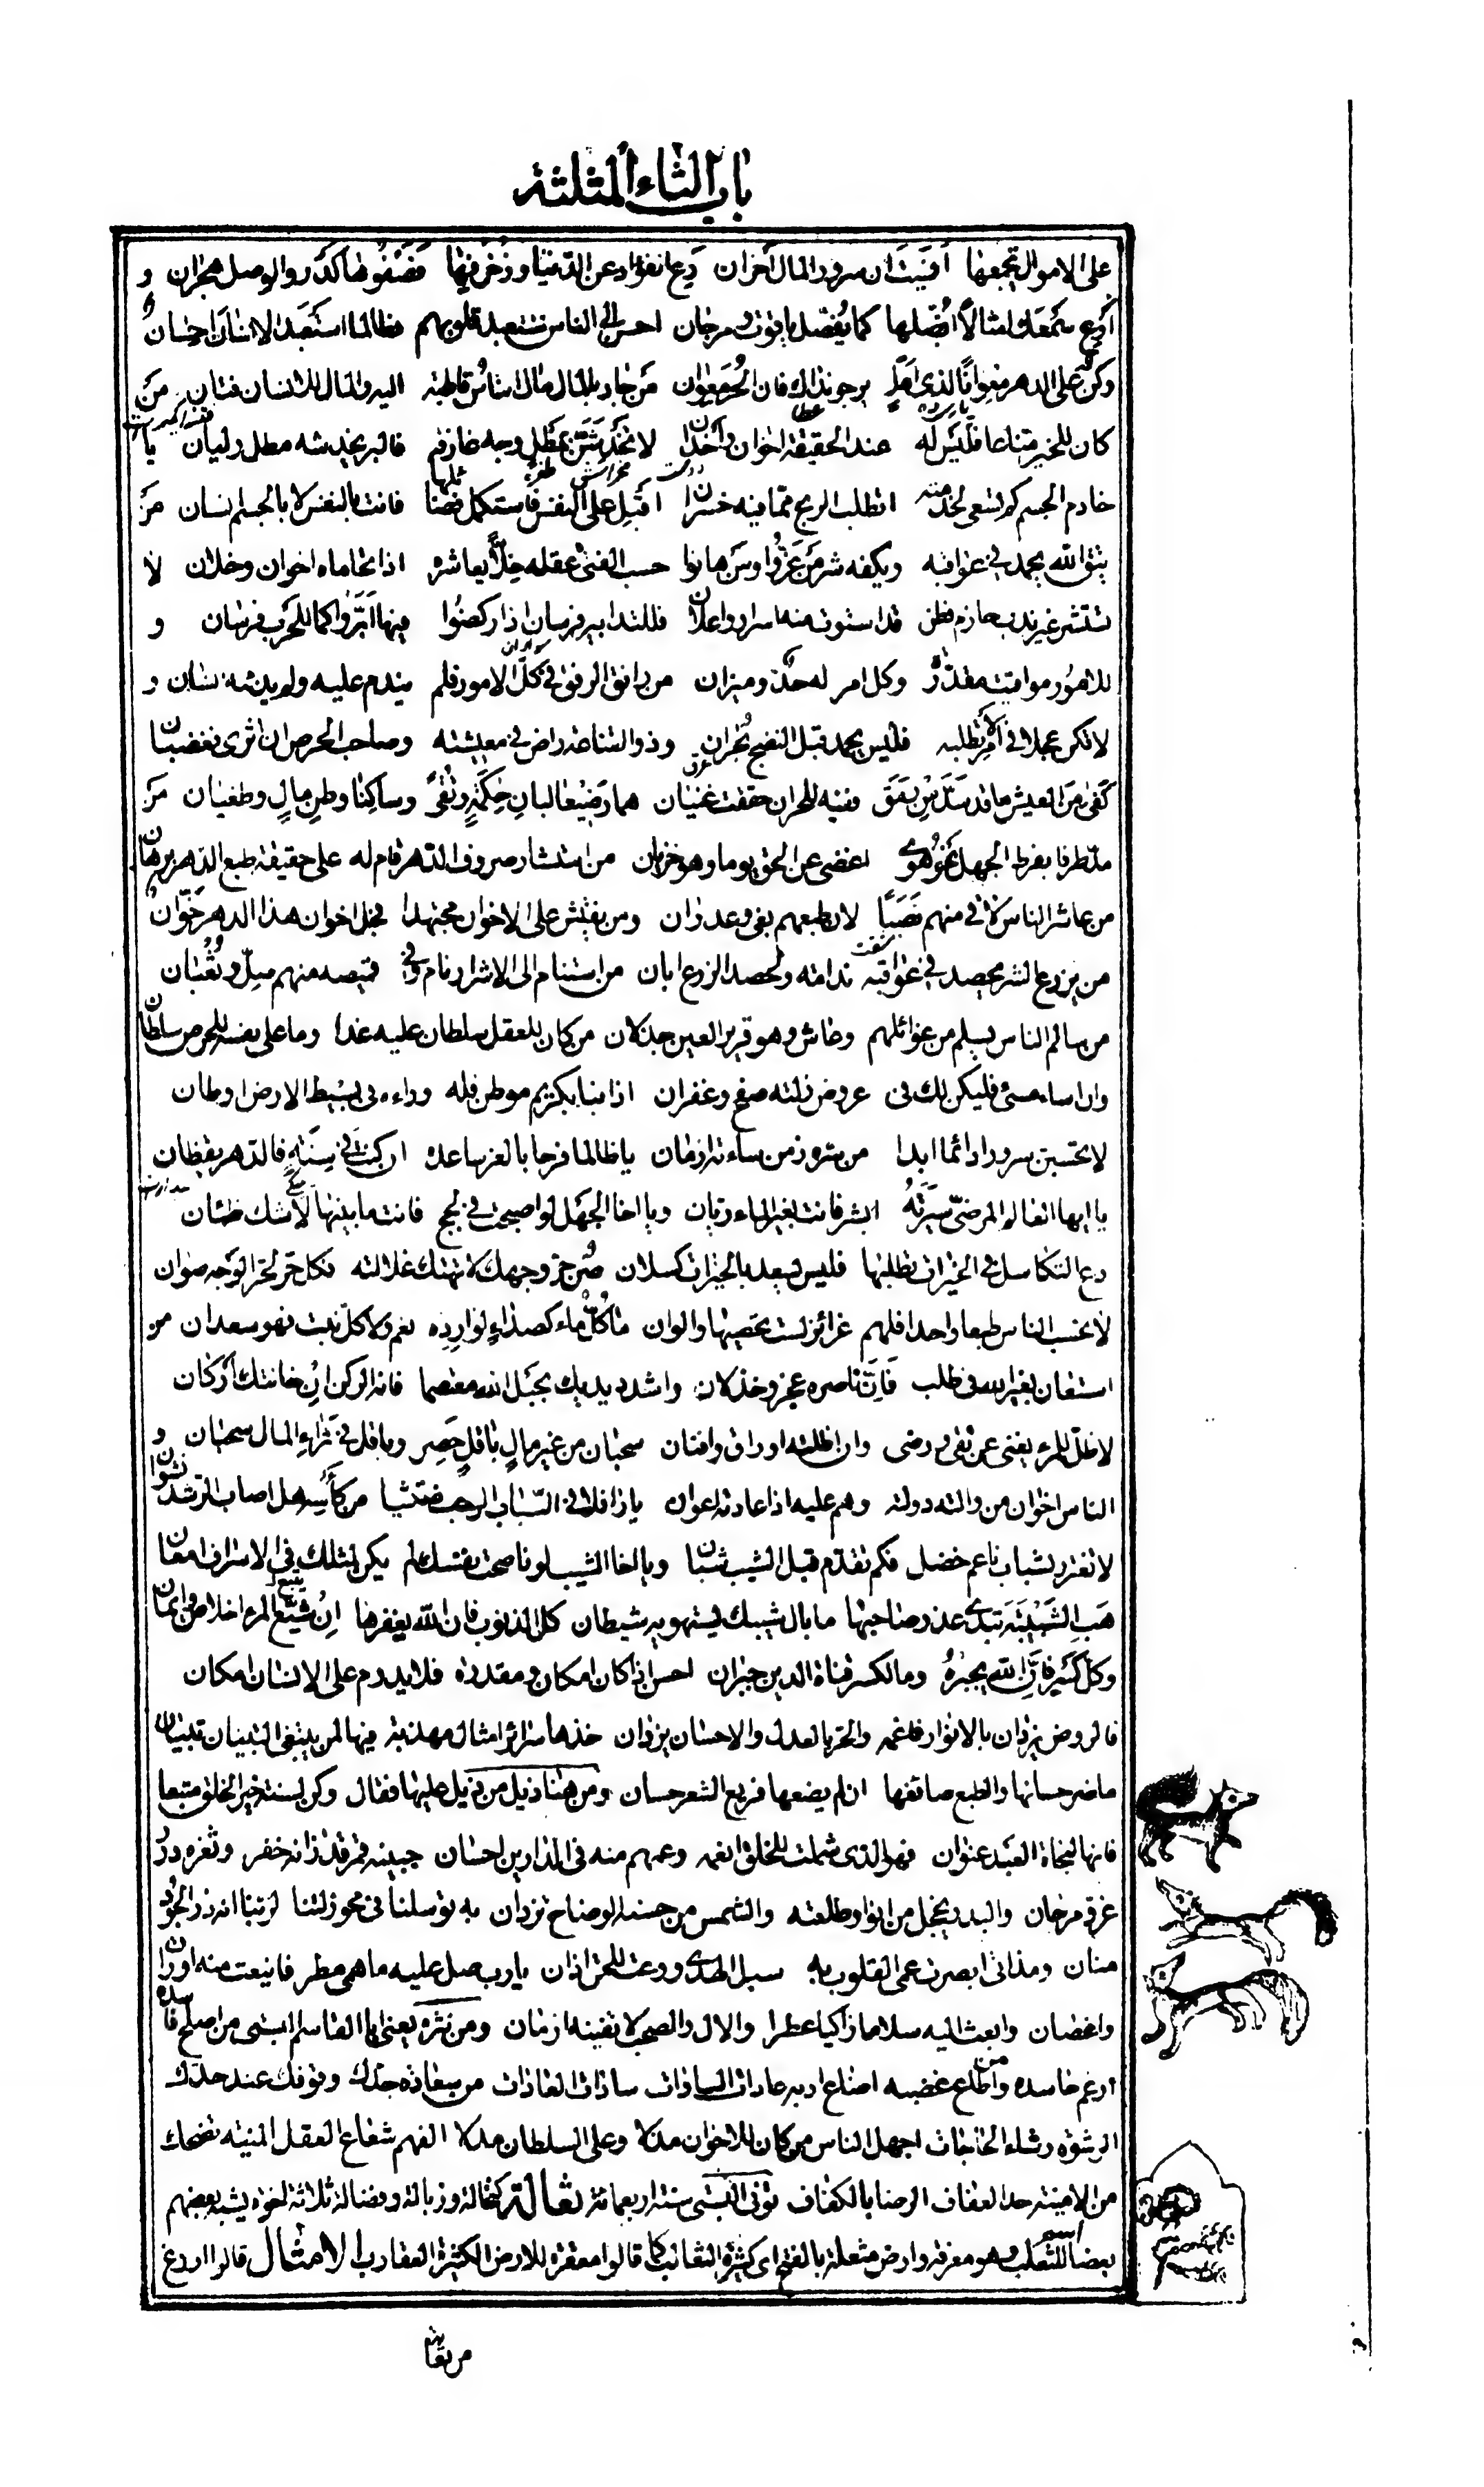 باب الثاء المثلثة
على الاموال تجمعها أنسيت ان سرور المال احزان دع الفؤاد عن الدنيا وزخرفها فصفوها كدر والوصل هجران و
أرع سمعك امثالا أفصلها كما يفصل ياقوت ومرجان احسن الى الناس تستعبد قلوبهم فطالما استعبد الانسان احسان
وكن على الدهر معوانا لذى امل يرجو نداك فان الحر معوان من جاد بالمال مال الناس قاطبة اليه والمال للانسان فتان من
كان للخير مناعا فليس له عند الحقيقة اخوان وأخدان لا تخدشن بمطل وجه عارفة فالبر يخدشه مطل وليان يا
خادم الجسم كم تسعى لخدمته اتطلب الربح مما فيه خسران اقبل على النفس فاستكمل فضائلها فانت بالنفس لا بالجسم انسان من
يتق الله يحمد فى عواقبه ويكفه شر من عزوا ومن هانوا حسب الفتى عقله خلا يعاشره اذا تحاماه اخوان وخلان لا
تستشر غير ندب حازم فطن قد استوت منه اسرار واعلان فللتدابير فرسان اذا ركضوا فيها أبروا كما للحرب فرسان و
للامور مواقيت مقدرة وكل امر له حد وميزان من رافق الرفق فى كل الامور فلم يندم عليه ولم يذمه انسان و
لا تكن عجلا فى الامر تطلبه فليس يحمد قبل النضج بحران وذو القناعة راض فى معيشته وصاحب الحرص ان اثرى فغضبان
كفى من العيش ما قد سد من رمق ففيه للحر ان حققت غنيان هما رضيعا لبان حكمة وتقى وساكنا وطن مال وطغيان من
مد طرفا بفرط الجهل نحو هوى اغضى عن الحق يوما وهو خزيان من استشار صروف الدهر قام له على حقيقة طبع الدهر برهان
من عاشر الناس لاقى منهم نصبا لان طبعهم بغى وعدوان ومن يفتش على الاخوان مجتهدا فجل اخوان هذا الدهر خوان
من يزرع الشر يحصد فى عواقبه ندامة ولحصد الزرع ابان من استنام الى الاشرار نام وفى قميصه منهم صل وثعبان
من سالم الناس يسلم من غوائلهم وعاش وهو قرير العين جذلان من كان للعقل سلطان عليه غدا وما على نفسه للحرص سلطان
وان اساء مسئ فليكن لك فى عروض زلته صفح وغفران اذا نبا بكريم موطن فله وراءه فى بسيط الارض اوطان
لا تحسبن سرورا دائما ابدا من سره زمن ساءته ازمان يا ظالما فرحا بالعز ساعده ان كنت فى سنة فالدهر يقظان
يا ايها العالم المرضى سيرته ابشر فانت بغير الماء ريان ويا اخا الجهل لو اصبحت فى لجج فانت ما بينها لا شك ظمآن
دع التكاسل فى الخيرات تطلبها فليس يسعد بالخيرات كسلان صن حر وجهك لا تهتك غلالته فكل حر لحر الوجه صوان
لا تحسب الناس طبعا واحدا فلهم غرائز لست تحصيها والوان ما كل ماء كصداء لوارده نعم ولا كل نبت فهو سعدان من
استعان بغير الله فى طلب فان ناصره عجز وخذلان واشدد يديك بحبل الله معتصما فانه الركن ان خانتك أركان
لا ظل للمرء يغنى عن تقى ورضى وان اظلته اوراق وافنان سحبان من غير مال باقل حصر وباقل فى ثراء المال سحبان و
الناس اخوان من والته دولته وهم عليه اذا عادته اعوان يا رافلا فى الشباب الرحب منتشيا من كأسه هل اصاب الرشد نشوان
لا تغترر بشباب ناعم خضل فكم تقدم قبل الشيب شبان ويا اخا الشيب لو ناصحت نفسك لم يكن لمثلك فى الاسراف امعان
هب الشبيبة تبدى عذر صاحبها ما بال شيبك يستهويه شيطان كل الذنوب فان الله يغفرها ان شيع المرء اخلاص وايمان
وكل كسر فان الله يجبره وما لكسر قناة الدين جبران احسن اذا كان امكان ومقدرة فلا يدوم على الانسان امكان
فالروض يزدان بالانوار فاغمه والحر بالعدل والاحسان يزدان خذها سرائر امثال مهذبة فيها لمن يبتغى التبيان تبيان
ما ضر حسانها والطبع صائغها ان لم يصغها قريع الشعر حسان ومن هنا ذيل من ذيل عليها فقال وكن لسنة خير الخلق متبعا
فانها لنجاة العبد عنوان فهو الذى شملت للخلق انعمه وعمهم منه فى الدارين احسان جبينه قمر قد زانه خفر وثغره درر
غر ومرجان والبدر يخجل من انوار طلعته والشمس من حسنه الوضاح تزدان به توسلنا فى محو زلتنا لربنا انه ذو الجود
منان ومذ اتى ابصرت عمى القلوب به سبل الهدى ووعت للحق اذان يا رب صل عليه ما همى مطر فاينعت منه اوراق
واغصان وابعث اليه سلاما زاكيا عطرا والال والصحب لا تفنيه ازمان ومن نثره يعنى ابا القاسم البستى من اصلح فاسده
ارغم حاسده من اطاع غضبه اضاع ادبه عادات السادات سادات العادات من سعادة جدك وقوفك عند حدك
الرشوة رشاء الحاجات اجهل الناس من كان للاخوان مذلا وعلى السلطان مدلا الفهم شعاع العقل المنية تضحك
من الامنية حد العفاف الرضا بالكفاف توفى البستى سنة اربعمائة ثعالة كنخالة وزبالة وفضالة ثلاثة اخوة يشبه بعضهم
بعضا اسم للثعلب وهو معرفة وارض مثعلة بالفتح اى كثيرة الثعالب كما قالوا معقرة للارض الكثيرة العقارب الامثال قالوا اروغ
من ثعالة